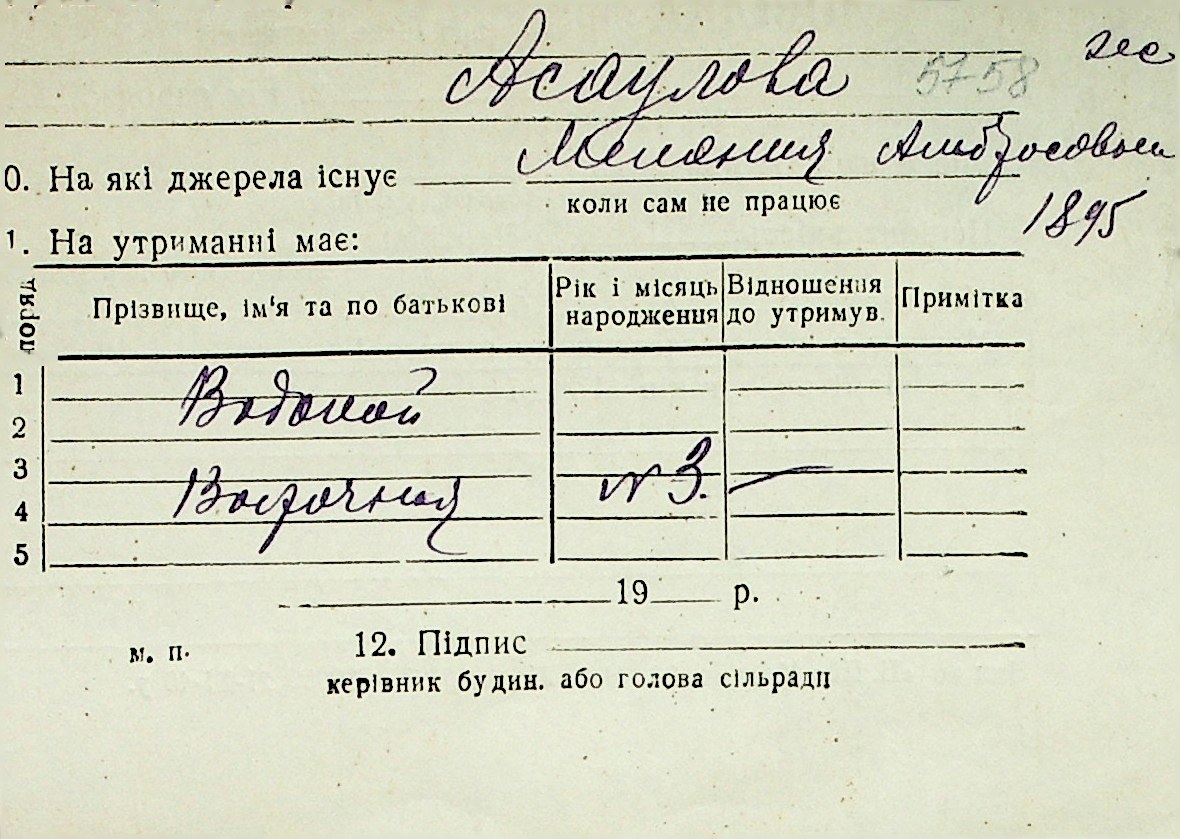 Асаулова 5758
Мелания Амбросовын
0. На які джерела існує
коли сам не працює
1895
1. На утриманні має:
поряд
Прізвище, ім'я та по батькові
Рік і місяць народження
Відношення до утримув.
Примітка
1
Водокой
2
3
Восточная № 3. —
4
5
19 р.
м. п.
12. Підпис
керівник будин. або голова сільради